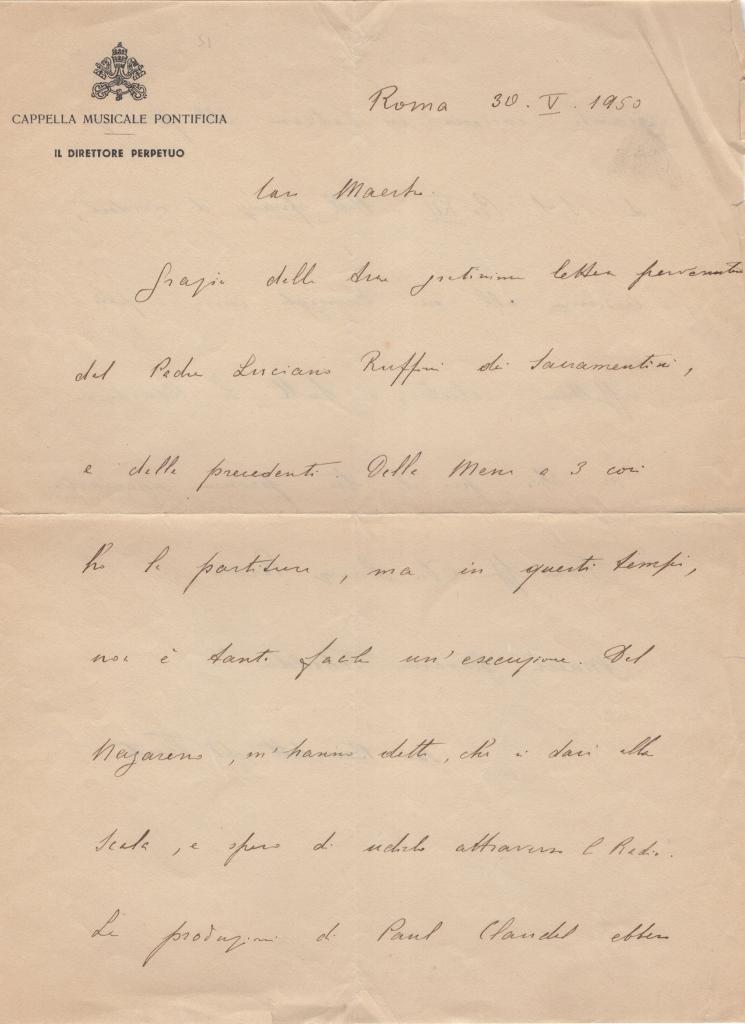 CAPPELLA MUSICALE PONTIFICIA
IL DIRETTORE PERPETUO
Roma 30.V.1950
Caro Maestro
Grazie della sua gratissima lettera pervenuta
dal Padre Luciano Ruffini dei Sacramentini,
e delle precedenti. Della Messa a 3 cori
ho la partitura, ma in questi tempi,
non è tanto facile un'esecuzione. Del
Nazareno, m'hanno detto, che si darà alla
Scala, e spero di udirlo attraverso la Radio.
Le produzioni di Paul Claudel ebbero